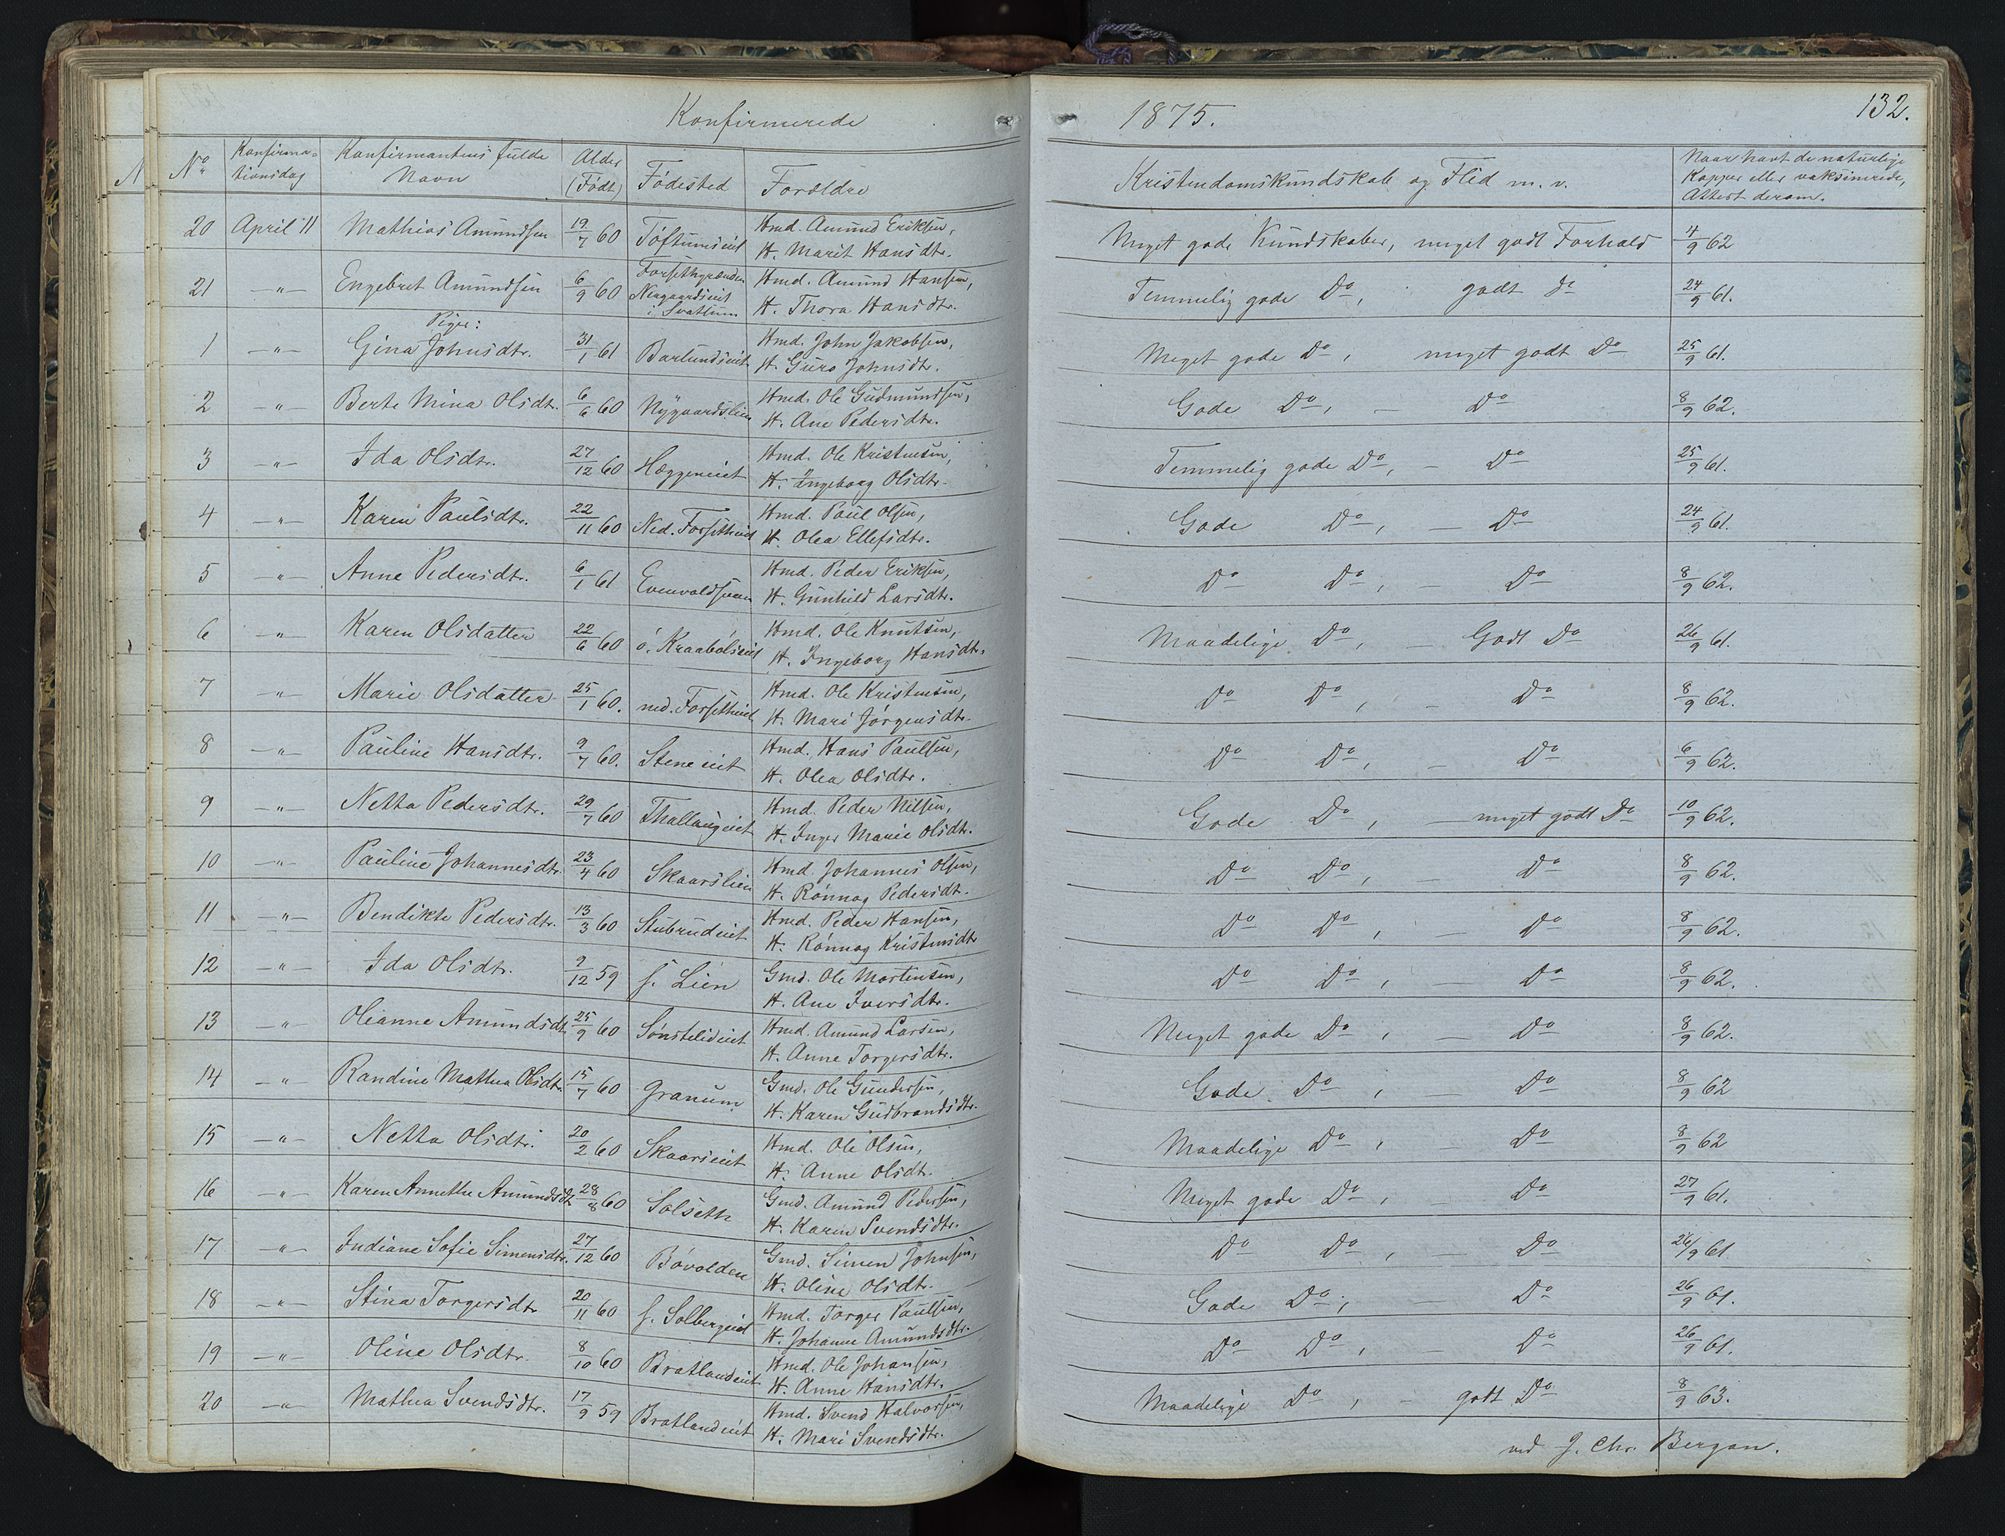 Konfirmerede 1875. 132.
No Konfirmationsdag Konfirmantens fulde Navn Alder (Født) Fødested Forældre Kristendomskundskab og Flid m. v. Naar havt de naturlige Kopper eller vaksinerede, Attest derom.
20 April 11 Mathias Amundsen 19/7 60 Toftumseiet Hmd. Amund Eriksen, H. Marit Hansdtr. Meget gode Kundskaber, meget godt Forhold 4/9 62
21 -"- Engebret Amundsen 6/9 60 Forsethgrænden Neegaardseiet i Svatsum Hmd. Amund Hansen, H. Thora Hansdtr. Temmelig gode Do, godt do 24/9 61.
Piger:
1 -"- Gina Johnsdtr. 31/1 61 Barlundseiet Hmd. John Jakobsen, H. Guro Johnsdtr. Meget gode Do, meget godt Do 25/9 61.
2 -"- Berte Mina Olsdt. 6/6 60 Nygaardslien Hmd. Ole Gudmundsen, H. Ane Pedersdtr. Gode Do, - Do 8/9 62.
3 -"- Ida Olsdtr. 27/12 60 Hæggeneiet Hmd. Ole Kristensen, H. Ingeborg Olsdtr. Temmelig gode Do, - Do 25/9 61.
4 -"- Karen Paulsdtr. 22/11 60 Ned. Forsetheiet Hmd. Paul Olsen, H. Olea Ellefsdtr. Gode Do, - Do 24/9 61.
5 -"- Anne Pedersdtr. 6/1 61 Evenvoldsveen Hmd. Peder Eriksen, H. Gunhild Larsdtr. Do Do, - Do 8/9 62.
6 -"- Karen Olsdatter 22/6 60 ö. Kraabölseiet Hmd. Ole Knutsen, H. Ingeborg Hansdtr. Maadelige Do, - Godt Do 26/9 61.
7 -"- Marie Olsdatter 25/1 60. ned. Forsetheiet Hmd. Ole Kristensen, H. Mari Jörgensdtr. Do Do, - Do 8/9 62.
8 -"- Pauline Hansdtr. 9/7 60. Steneeiet Hmd. Hans Paulsen, H. Olea Olsdtr. Do Do, - Do 6/9 62.
9 -"- Netta Pedersdtr. 29/7 60 Thallaugeiet Hmd. Peder Nilsen, H. Inger Marie Olsdtr. Gode Do, - meget godt Do 10/9 62.
10 -"- Pauline Johannesdtr. 23/4 60 Skaarslien Hmd. Johannes Olsen, H. Rönnog Pedersdtr. Do Do, - Do 8/9 62.
11 -"- Bendikte Pedersdtr. 13/3 60 Stubrudeiet Hmd. Peder Hansen, H. Rönnog Kristensdtr Do Do, - Do 8/9 62.
12 -"- Ida Olsdtr. 9/12 59 s. Lien Gmd. Ole Mortensen, H. Ane Iversdtr. Do Do, - Do 8/9 62.
13 -"- Olianne Amundsdtr. 25/9 60 Sönstelideiet Hmd. Amund Larsen, H. Anne Torgersdtr. Meget gode Do, - Do 8/9 62.
14 -"- Randine Mathea Olsdtr. 15/7 60 Granum. Gmd. Ole Gundersen, H. Karen Gudbrandsdtr. Gode Do, - Do 8/9 62
15 -"- Netta Olsdtr. 20/2 60 Skaarseiet Hmd. Ole Olsen, H. Anne Olsdt. Maadelige Do, - Do 8/9 62
16 -"- Karen Annethe Amundsdtr 28/8 60 Solseth Gmd. Amund Pedersen, H. Karen Svendsdtr. Meget gode Do, - Do 27/9 61.
17 -"- Indiane Sofie Simensdtr. 27/12 60 Bövolden Gmd. Simen Johnsen, H. Oline Olsdtr. Do Do, - Do 26/9 61
18 -"- Stina Torgersdtr 20/11 60 s. Solbergeiet Hmd. Torger Paulsen, H. Johanne Amundsdtr. Gode Do, - Do 26/9 61.
19 -"- Oline Olsdtr. 8/10 60 Bratlandeiet Hmd. Ole Johansen, H. Anne Hansdtr. Do Do, - Do 26/9 61.
20 -"- Mathea Svendsdtr. 17/9 59 Bratlandeiet Hmd. Svend Halvorsen, H. Mari Svendsdtr. Maadelige Do, - godt Do 8/9 63.
ved J. Chr. Bergan.